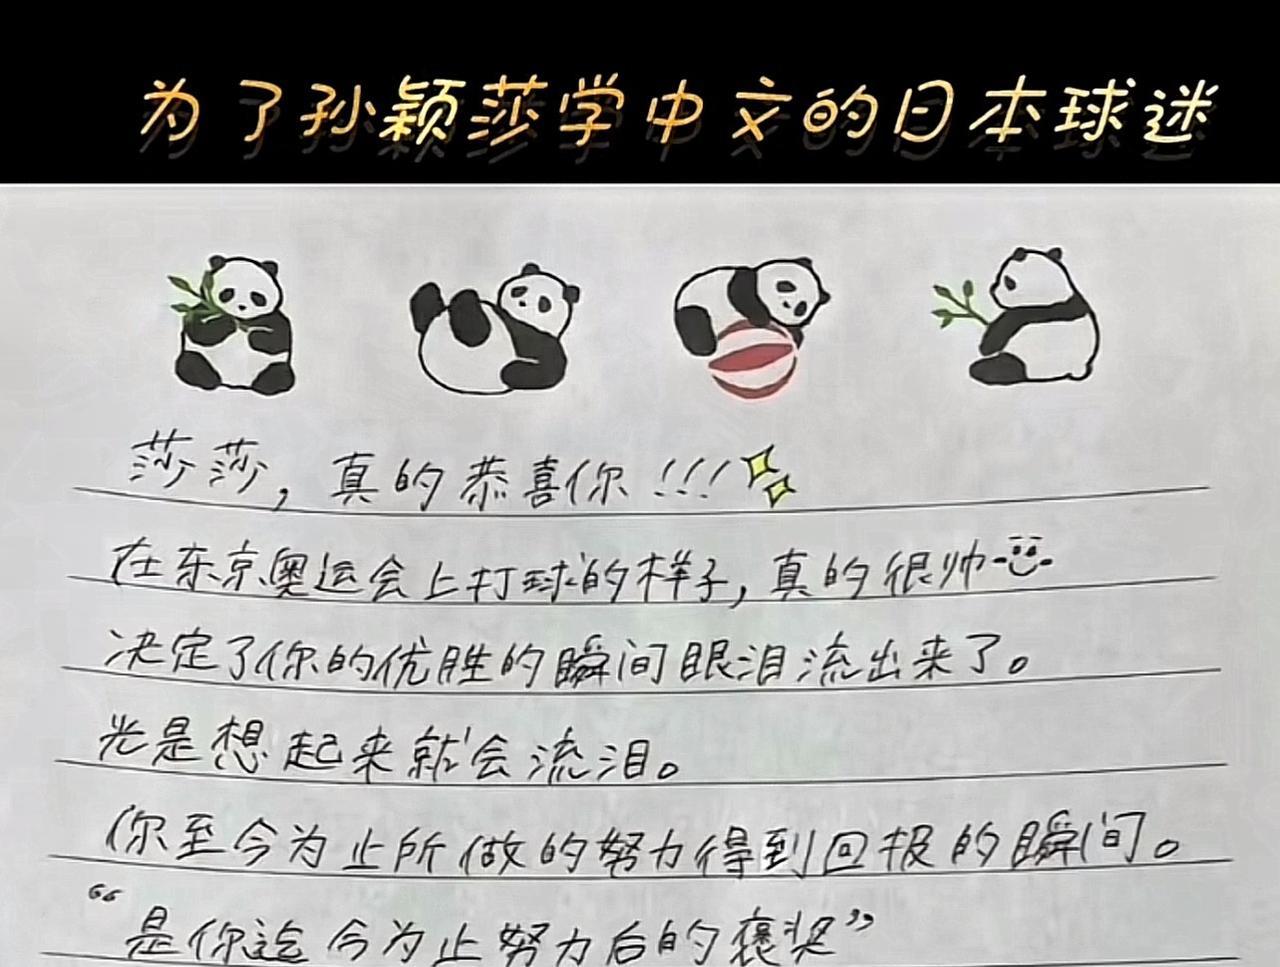 为了孙颖莎学中文的日本球迷
莎莎，真的恭喜你!!!
在东京奥运会上打球的样子，真的很帅
决定了你的优胜的瞬间眼泪流出来了。
光是想起来就会流泪。
你至今为止所做的努力得到回报的瞬间。
“是你迄今为止努力后的褒奖”